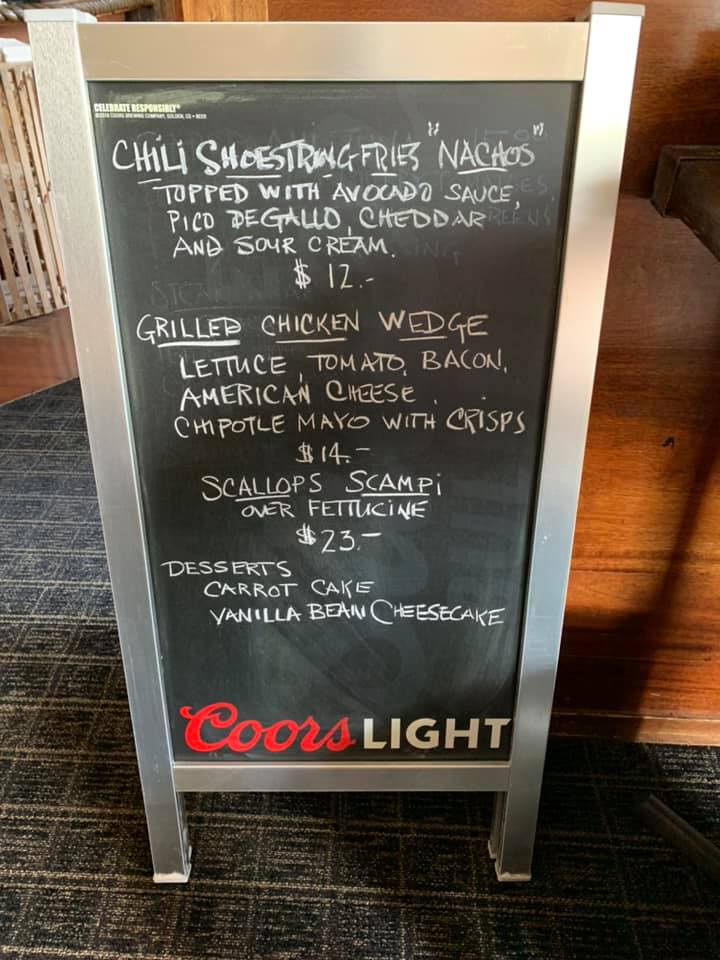 CELEBRATE RESPONSIBLY®
CHILI SHOESTRING FRIES "NACHOS"
TOPPED WITH AVOCADO SAUCE,
PICO DEGALLO, CHEDDAR
AND SOUR CREAM.
$ 12.-
GRILLED CHICKEN WEDGE
LETTUCE, TOMATO, BACON,
AMERICAN CHEESE,
CHIPOTLE MAYO WITH CRISPS
$ 14.-
SCALLOPS SCAMPI
OVER FETTUCINE
$ 23.-
DESSERTS
CARROT CAKE
VANILLA BEAN CHEESECAKE
Coors LIGHT